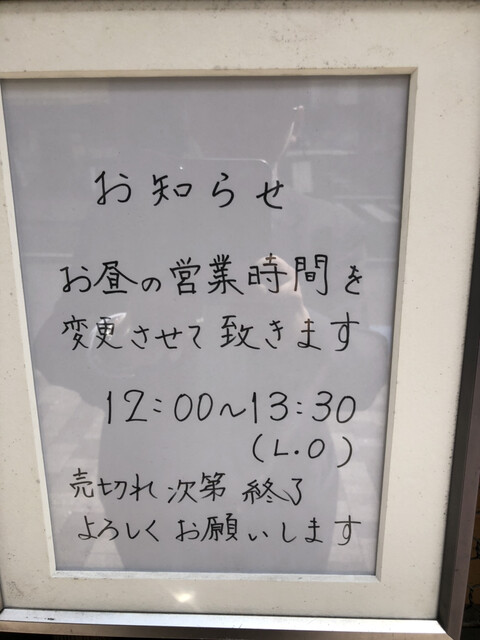 お知らせ
お昼の営業時間を
変更させて致きます
12:00~13:30
(L.O)
売切れ次第 終了
よろしくお願いします